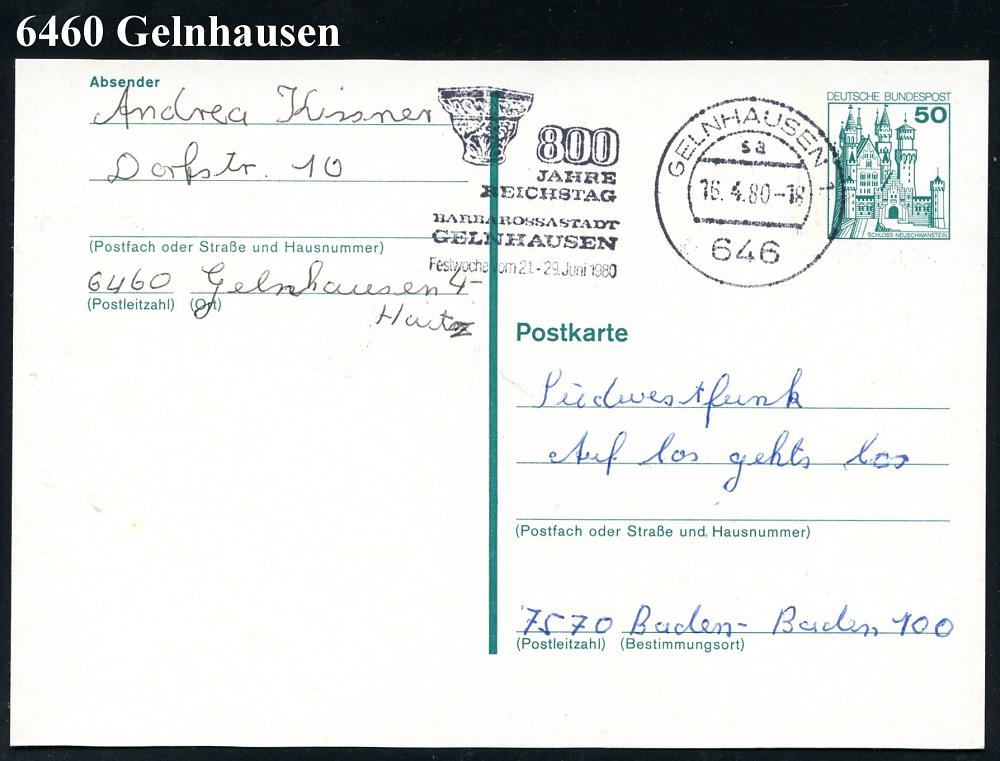 6460 Gelnhausen
Absender
Andrea Kissner
Dorfstr. 10
(Postfach oder Straße und Hausnummer)
6460 Gelnhausen 4-
Haitz
(Postleitzahl) (Ort)
800
JAHRE
REICHSTAG
BARBAROSSASTADT
GELNHAUSEN
Festwoche vom 21.-29. Juni 1980
GELNHAUSEN 1
sa
16.4.80-18
646
DEUTSCHE BUNDESPOST
50
SCHLOSS NEUSCHWANSTEIN
Postkarte
Südwestfunk
Auf los gehts los
(Postfach oder Straße und Hausnummer)
7570 Baden-Baden 100
(Postleitzahl) (Bestimmungsort)